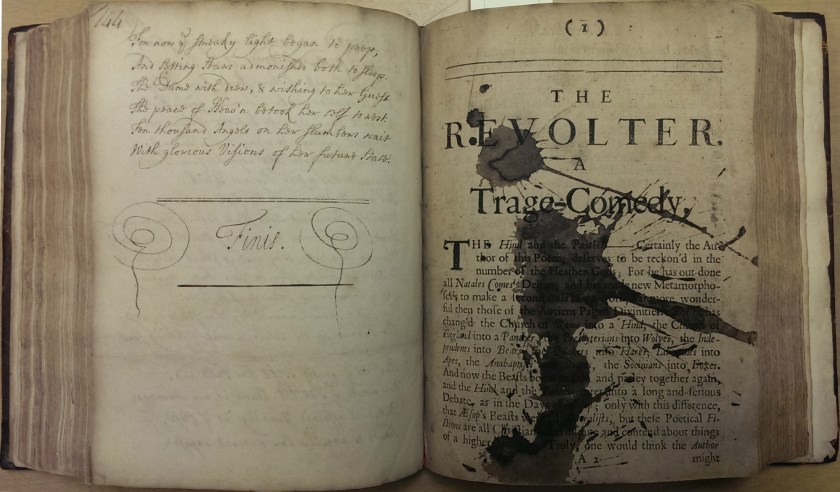 144
For now ye streaky light began to peep,
And setting stars admonished both to sleep.
The Dame withdrew, & wishing to her Guest
The peace of Heav'n betook her self to rest
Ten thousand Angels on her slumbers wait
With glorious Visions of her future State.
Finis.
(1)
THE
REVOLTER.
A
Trage-Comedy.
THE Hind and the Panther Certainly the Au-
thor of this Poem, deserves to be reckon'd in the
number of the Heathen Gods; For he has out-done
all Natales Comes's and his new Metamorpho-
ses, to make a second more wonder-
ful then those of the Ancient Pagan Divinities has
chang'd the Church of Rome into a Hind, the Church of
England into a Panther, the Presbyterians into Wolves, the Inde-
pendents into Bears, Quakers into Hares, into
Apes, the Anabaptists the Socinians into Foxes.
And now the Beasts and parley together again,
and the Hind and the enter into a long and serious
Debate, as in the Days; only with this difference,
that Æsop's Beasts were Moralists, but these Poetical Fi-
ctions are all Christians and contend about things
of a higher Truly, one would think the Author
A 2 might